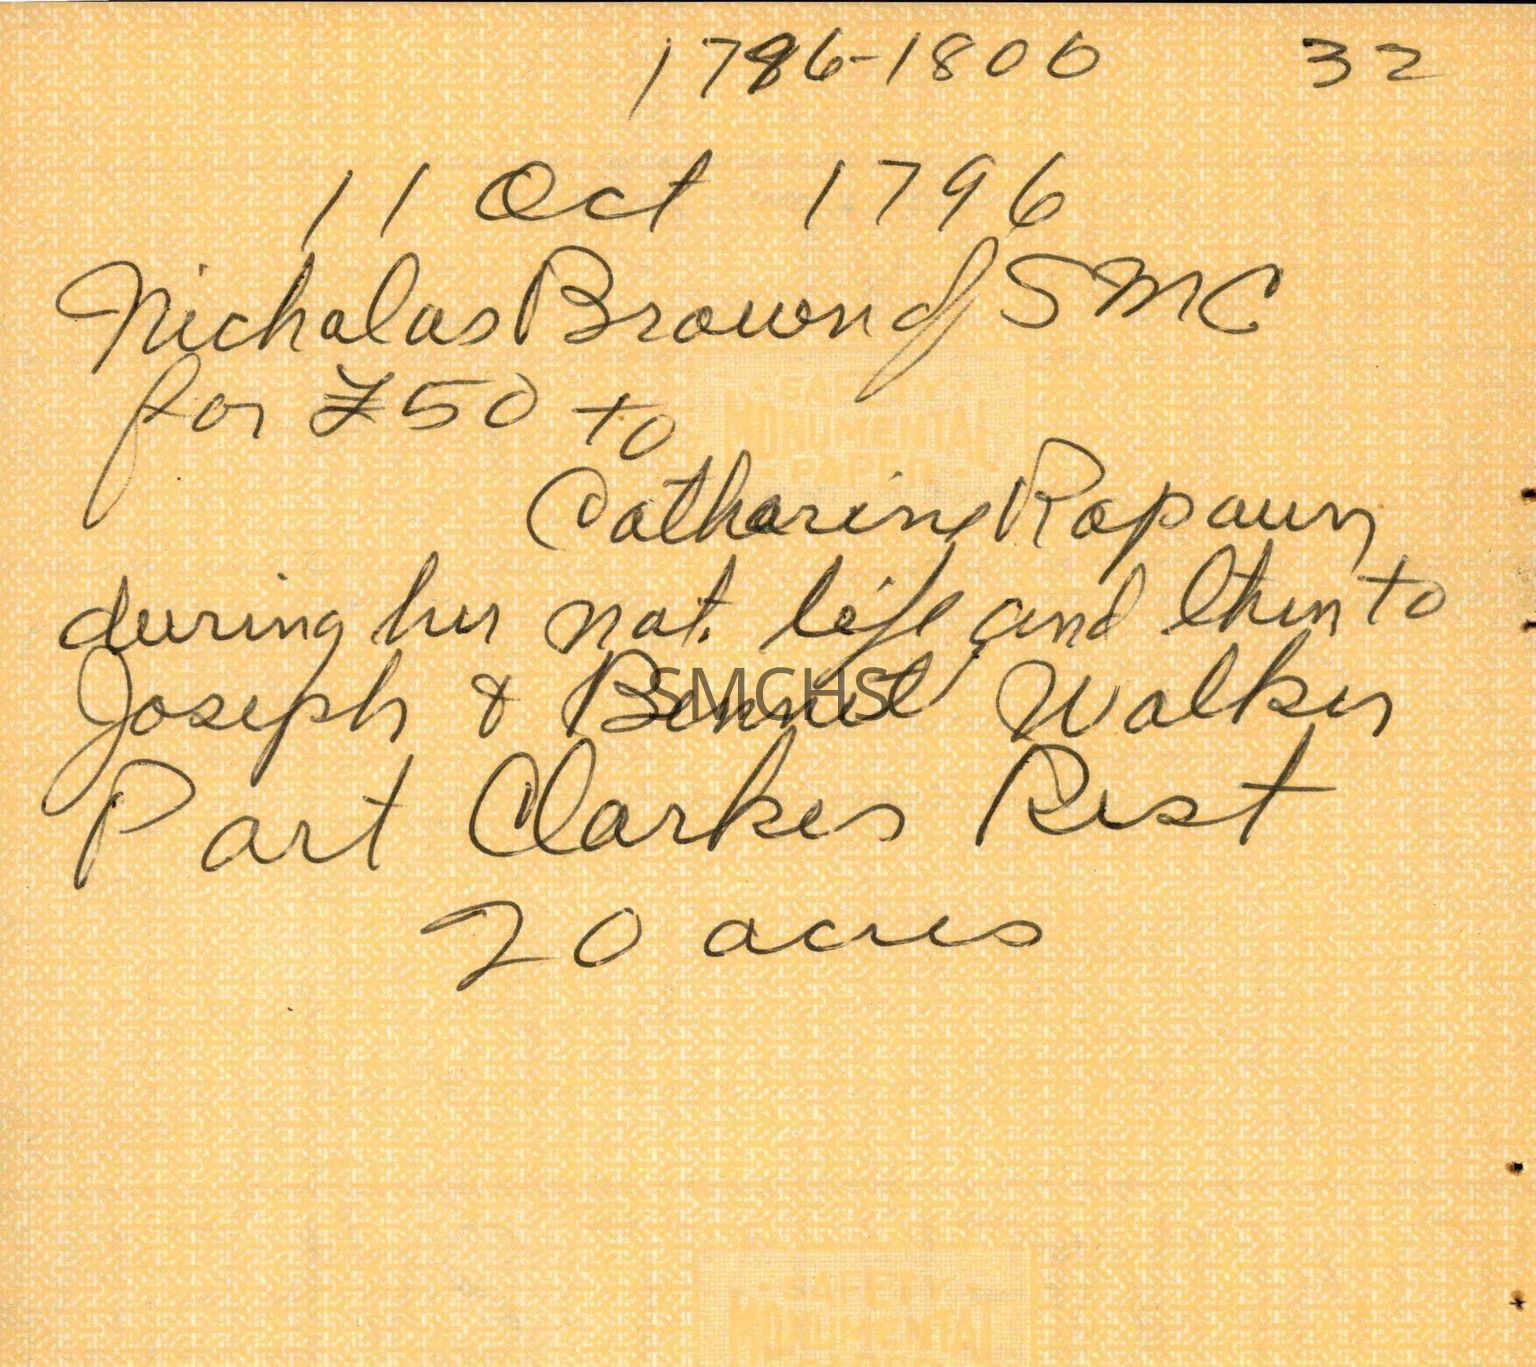 1796-1800 32
11 Oct 1796
Nicholas Brown of SMC
for £50 to
Catharine Rapaun
during her nat. life and then to
Joseph & Bennet Walker
SMCHS
Part Clarkes Rest
20 acres
SAFETY
MONUMENTAL
SAFETY
MONUMENTAL